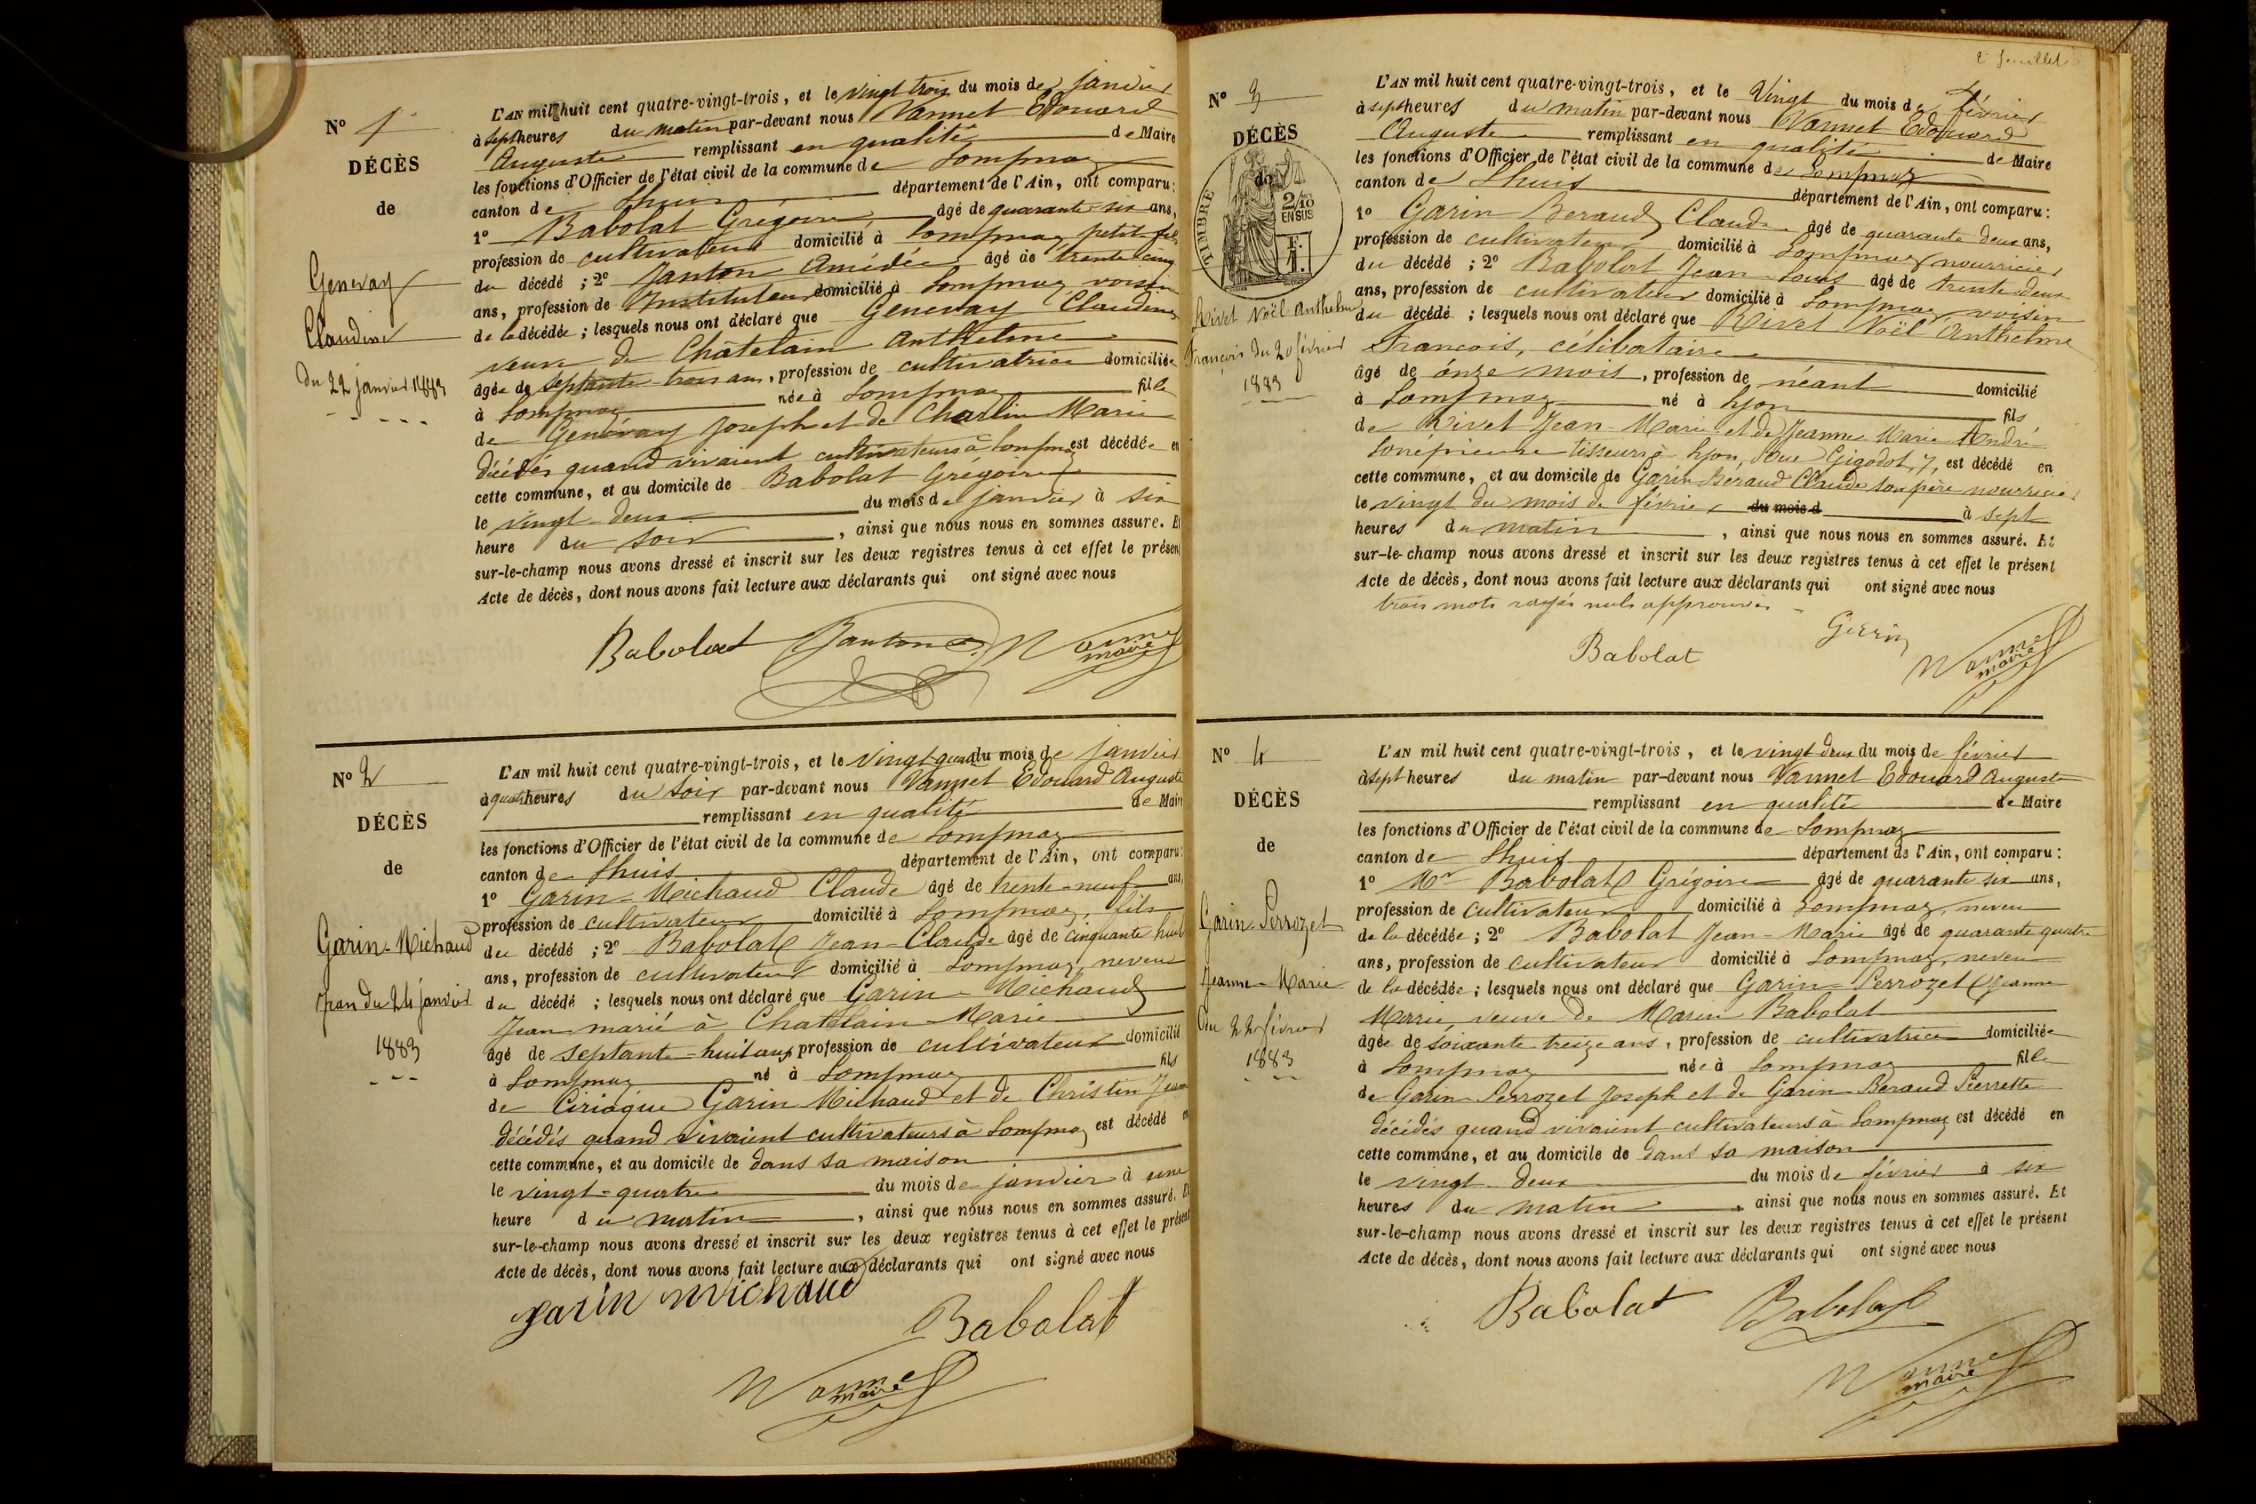 N° 1
DÉCÈS
de
Genevay
Claudine
du 22 janvier 1883
L'AN mil huit cent quatre-vingt-trois, et le vingt trois du mois de janvier
à sept heures du matin par-devant nous Vannet Edouard
Auguste remplissant en qualité de Maire
les fonctions d'Officier de l'état civil de la commune de Lompnaz
canton de Lhuis département de l'Ain, ont comparu:
1° Babolat Grégoire âgé de quarante six ans,
profession de cultivateur domicilié à Lompnaz petit-fils
du décédé; 2° Janton Amédée âgé de trente cinq
ans, profession de Instituteur domicilié à Lompnaz, voisin
de la décédée; lesquels nous ont déclaré que Genevay Claudine
veuve de Châtelain Anthelme
âgée de septante-trois ans, profession de cultivatrice domiciliée
à Lompnaz née à Lompnaz fille
de Genevay Joseph et de Charlin Marie
décédés quand vivaient cultivateurs à Lompnaz est décédée en
cette commune, et au domicile de Babolat Grégoire
le vingt-deux du mois de janvier à six
heure du soir, ainsi que nous nous en sommes assuré. Et
sur-le-champ nous avons dressé et inscrit sur les deux registres tenus à cet effet le présent
Acte de décès, dont nous avons fait lecture aux déclarants qui ont signé avec nous
Babolat Janton Vannet
maire
N° 2
DÉCÈS
de
Garin-Michaud
Jean du 24 janvier
1883
L'AN mil huit cent quatre-vingt-trois, et le vingt-quatre du mois de janvier
à quatre heures du soir par-devant nous Vannet Edouard Auguste
remplissant en qualité de Maire
les fonctions d'Officier de l'état civil de la commune de Lompnaz
canton de Lhuis département de l'Ain, ont comparu:
1° Garin-Michaud Claude âgé de trente-neuf ans,
profession de cultivateur domicilié à Lompnaz, fils
du décédé; 2° Babolat Jean-Claude âgé de cinquante huit
ans, profession de cultivateur domicilié à Lompnaz, neveu
du décédé; lesquels nous ont déclaré que Garin-Michaud
Jean marié à Chatelain Marie
âgé de septante-huit ans profession de cultivateur domicilié
à Lompnaz né à Lompnaz fils
de Ciriaque Garin Michaud et de Christin Jeanne
décédés quand vivaient cultivateurs à Lompnaz est décédé en
cette commune, et au domicile de dans sa maison
le vingt-quatre du mois de janvier à une
heure du matin, ainsi que nous nous en sommes assuré. Et
sur-le-champ nous avons dressé et inscrit sur les deux registres tenus à cet effet le présent
Acte de décès, dont nous avons fait lecture aux déclarants qui ont signé avec nous
garin michaud
Babolat
Vannet
maire
2e feuillet
N° 3
DÉCÈS
de
TIMBRE
2/10
EN SUS
Rivet Noël Anthelme
François du 20 février
1883
L'AN mil huit cent quatre-vingt-trois, et le Vingt du mois de février
à sept heures du matin par-devant nous Vannet Edouard
Auguste remplissant en qualité de Maire
les fonctions d'Officier de l'état civil de la commune de Lompnaz
canton de Lhuis département de l'Ain, ont comparu:
1° Garin Beraud Claude âgé de quarante deux ans,
profession de cultivateur domicilié à Lompnaz nourricier
du décédé; 2° Babolat Jean-Louis âgé de trente-deux
ans, profession de cultivateur domicilié à Lompnaz, voisin
du décédé; lesquels nous ont déclaré que Rivet Noël Anthelme
François, célibataire
âgé de onze mois, profession de néant domicilié
à Lompnaz né à Lyon fils
de Rivet Jean-Marie et de Jeanne Marie André
tisseurs à Lyon, est décédé en
cette commune, et au domicile de Garin Beraud Claude son père nourricier
le vingt du mois de février du mois d à sept
heures du matin, ainsi que nous nous en sommes assuré. Et
sur-le-champ nous avons dressé et inscrit sur les deux registres tenus à cet effet le présent
Acte de décès, dont nous avons fait lecture aux déclarants qui ont signé avec nous
trois mots rayés nuls approuvés
Babolat Garin Vannet
maire
N° 4
DÉCÈS
de
Garin-Perrozet
Jeanne-Marie
du 22 février
1883
L'AN mil huit cent quatre-vingt-trois, et le vingt-deux du mois de février
à sept heures du matin par-devant nous Vannet Edouard Auguste
remplissant en qualité de Maire
les fonctions d'Officier de l'état civil de la commune de Lompnaz
canton de Lhuis département de l'Ain, ont comparu:
1° Mr Babolat Grégoire âgé de quarante six ans,
profession de cultivateur domicilié à Lompnaz, neveu
de la décédée; 2° Babolat Jean-Marie âgé de quarante quatre
ans, profession de cultivateur domicilié à Lompnaz, neveu
de la décédée; lesquels nous ont déclaré que Garin-Perrozet Jeanne
Marie veuve de Marin Babolat
âgée de soixante treize ans, profession de cultivatrice domiciliée
à Lompnaz née à Lompnaz fille
de Garin Perrozet Joseph et de Garin Beraud Pierrette
décédés quand vivaient cultivateurs à Lompnaz est décédé en
cette commune, et au domicile de dans sa maison
le vingt-deux du mois de février à six
heures du matin, ainsi que nous nous en sommes assuré. Et
sur-le-champ nous avons dressé et inscrit sur les deux registres tenus à cet effet le présent
Acte de décès, dont nous avons fait lecture aux déclarants qui ont signé avec nous
Babolat Babolat
Vannet
maire